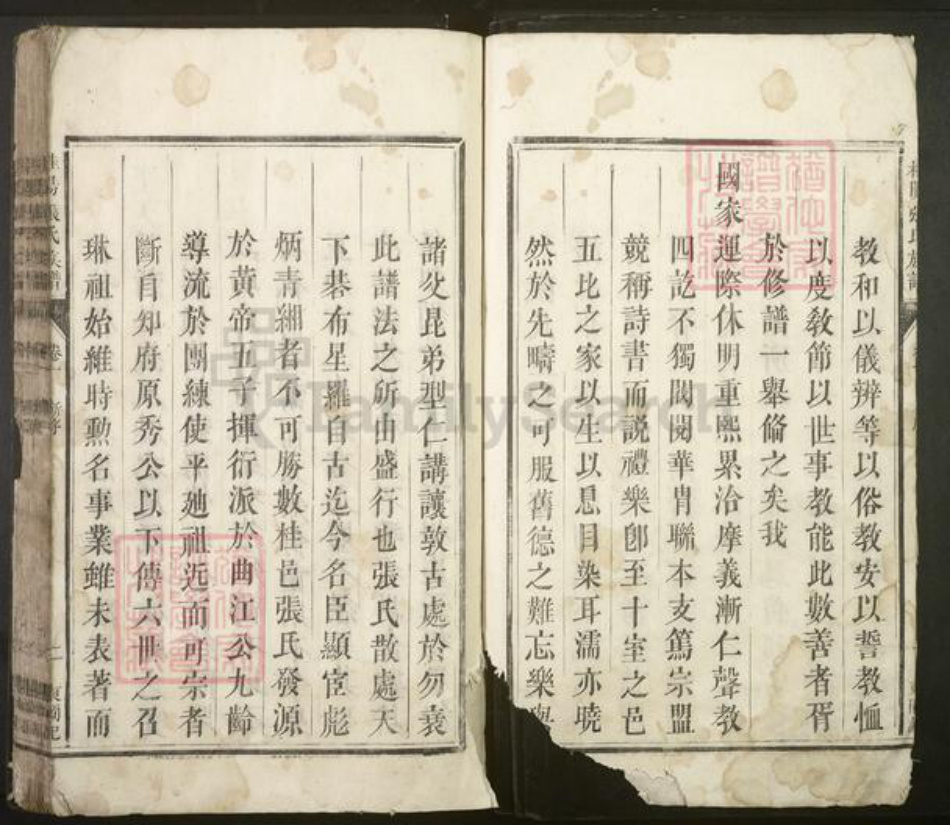 教和以儀辨等以俗教安以誓教恤
以度教節以世事教能此數善者胥
於修譜一舉脩之矣我
國家運際休明重熙累治摩義漸仁聲教
四訖不獨閥閱華胄聯本支篤宗盟
競稱詩書而説禮樂卽至十室之邑
五比之家以生以息目染耳濡亦曉
然於先疇之可服舊德之難忘樂與
諸父昆弟型仁講讓敦古處於勿衰
此譜法之所由盛行也張氏散處天
下棊布星羅自古迄今名臣顯宦彪
炳青緗者不可勝數桂邑張氏發源
於黃帝五子揮衍派於曲江公九齡
導流於團練使平𨒪祖近而可宗者
斷自知府原秀公以下傳六世之召
琳祖始維時勲名事業雖未表著而
張氏族譜 卷
FamilySearch